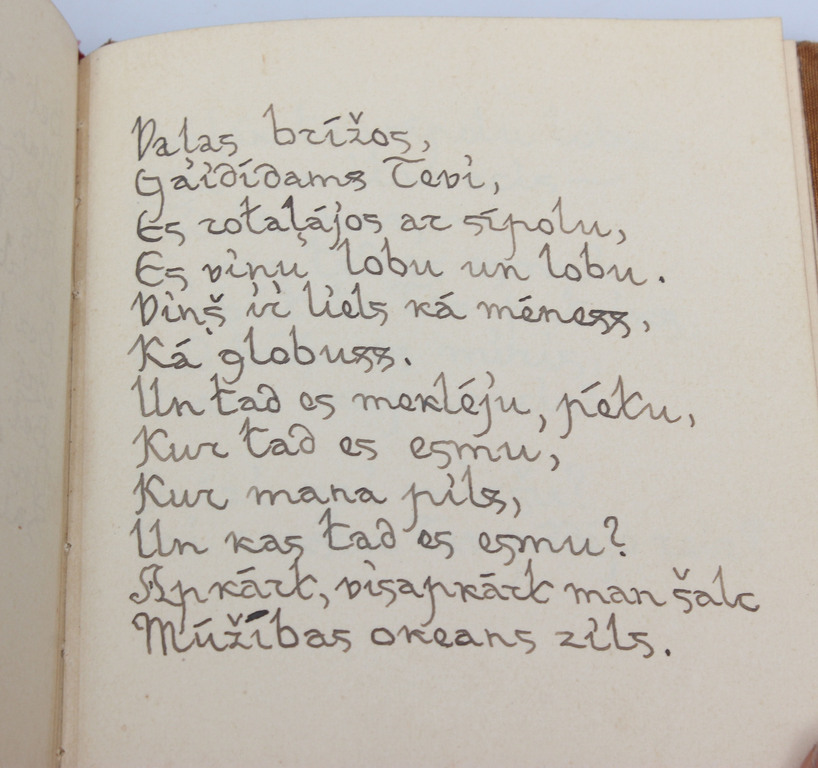 Vaļas brīžos,
Gaidīdams Tevi,
Es rotaļájos ar sīpolu,
Es viņu lobu un lobu.
Viņš ir liels ká ménesss,
Ká globusss.
Un tad es mekléju, péku,
Kur tad es esmu,
Kur mana pils,
Un kas tad es esmu?
Apkárt, visapkárt man šalc
Múžíbas okeans zils.